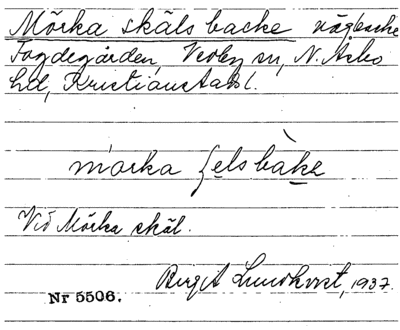 Mörka skäls backe vägbacke
Fogdegården, Vedby sn, N. Åsbo
hd, Kristianstads l.
mörka ʃels bàke
Vid Mörka skäl.
Birgit Lundkvist, 1937.
Nr 5506.